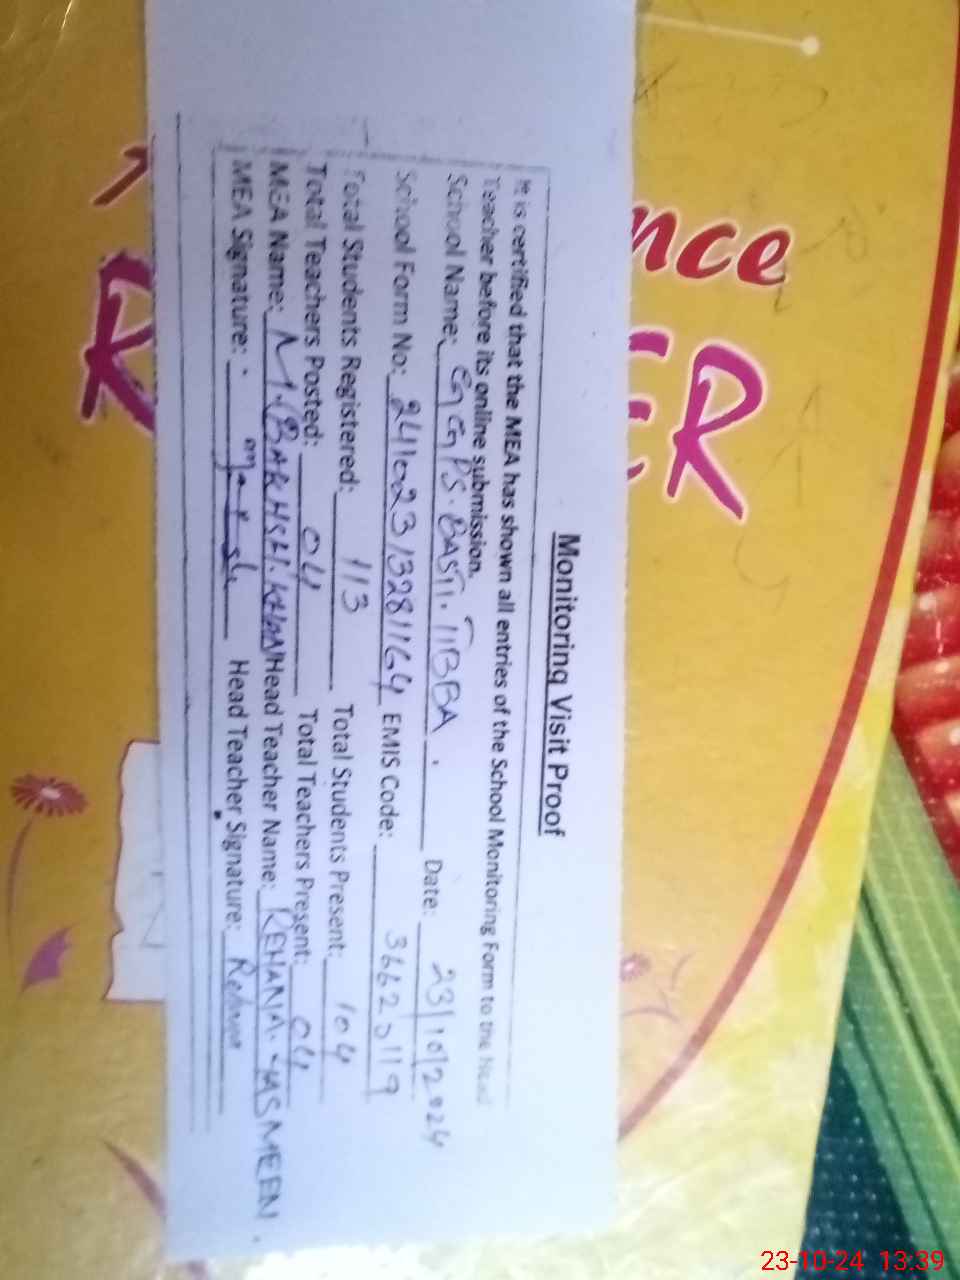 Monitoring Visit Proof
It is certified that the MEA has shown all entries of the School Monitoring Form to the Head
Teacher before its online submission.
School Name: GGPS. BASTI. TIBBA. Date: 23/10/2024
School Form No: 24102313281164 EMIS Code: 36623119
Total Students Registered: 113 Total Students Present: 104
Total Teachers Posted: 04 Total Teachers Present: 04
MEA Name: M. BAKHSH. KHAN Head Teacher Name: REHANA. YASMEEN
MEA Signature: - Head Teacher Signature: Rehana
nce
R
R
23-10-24 13:39